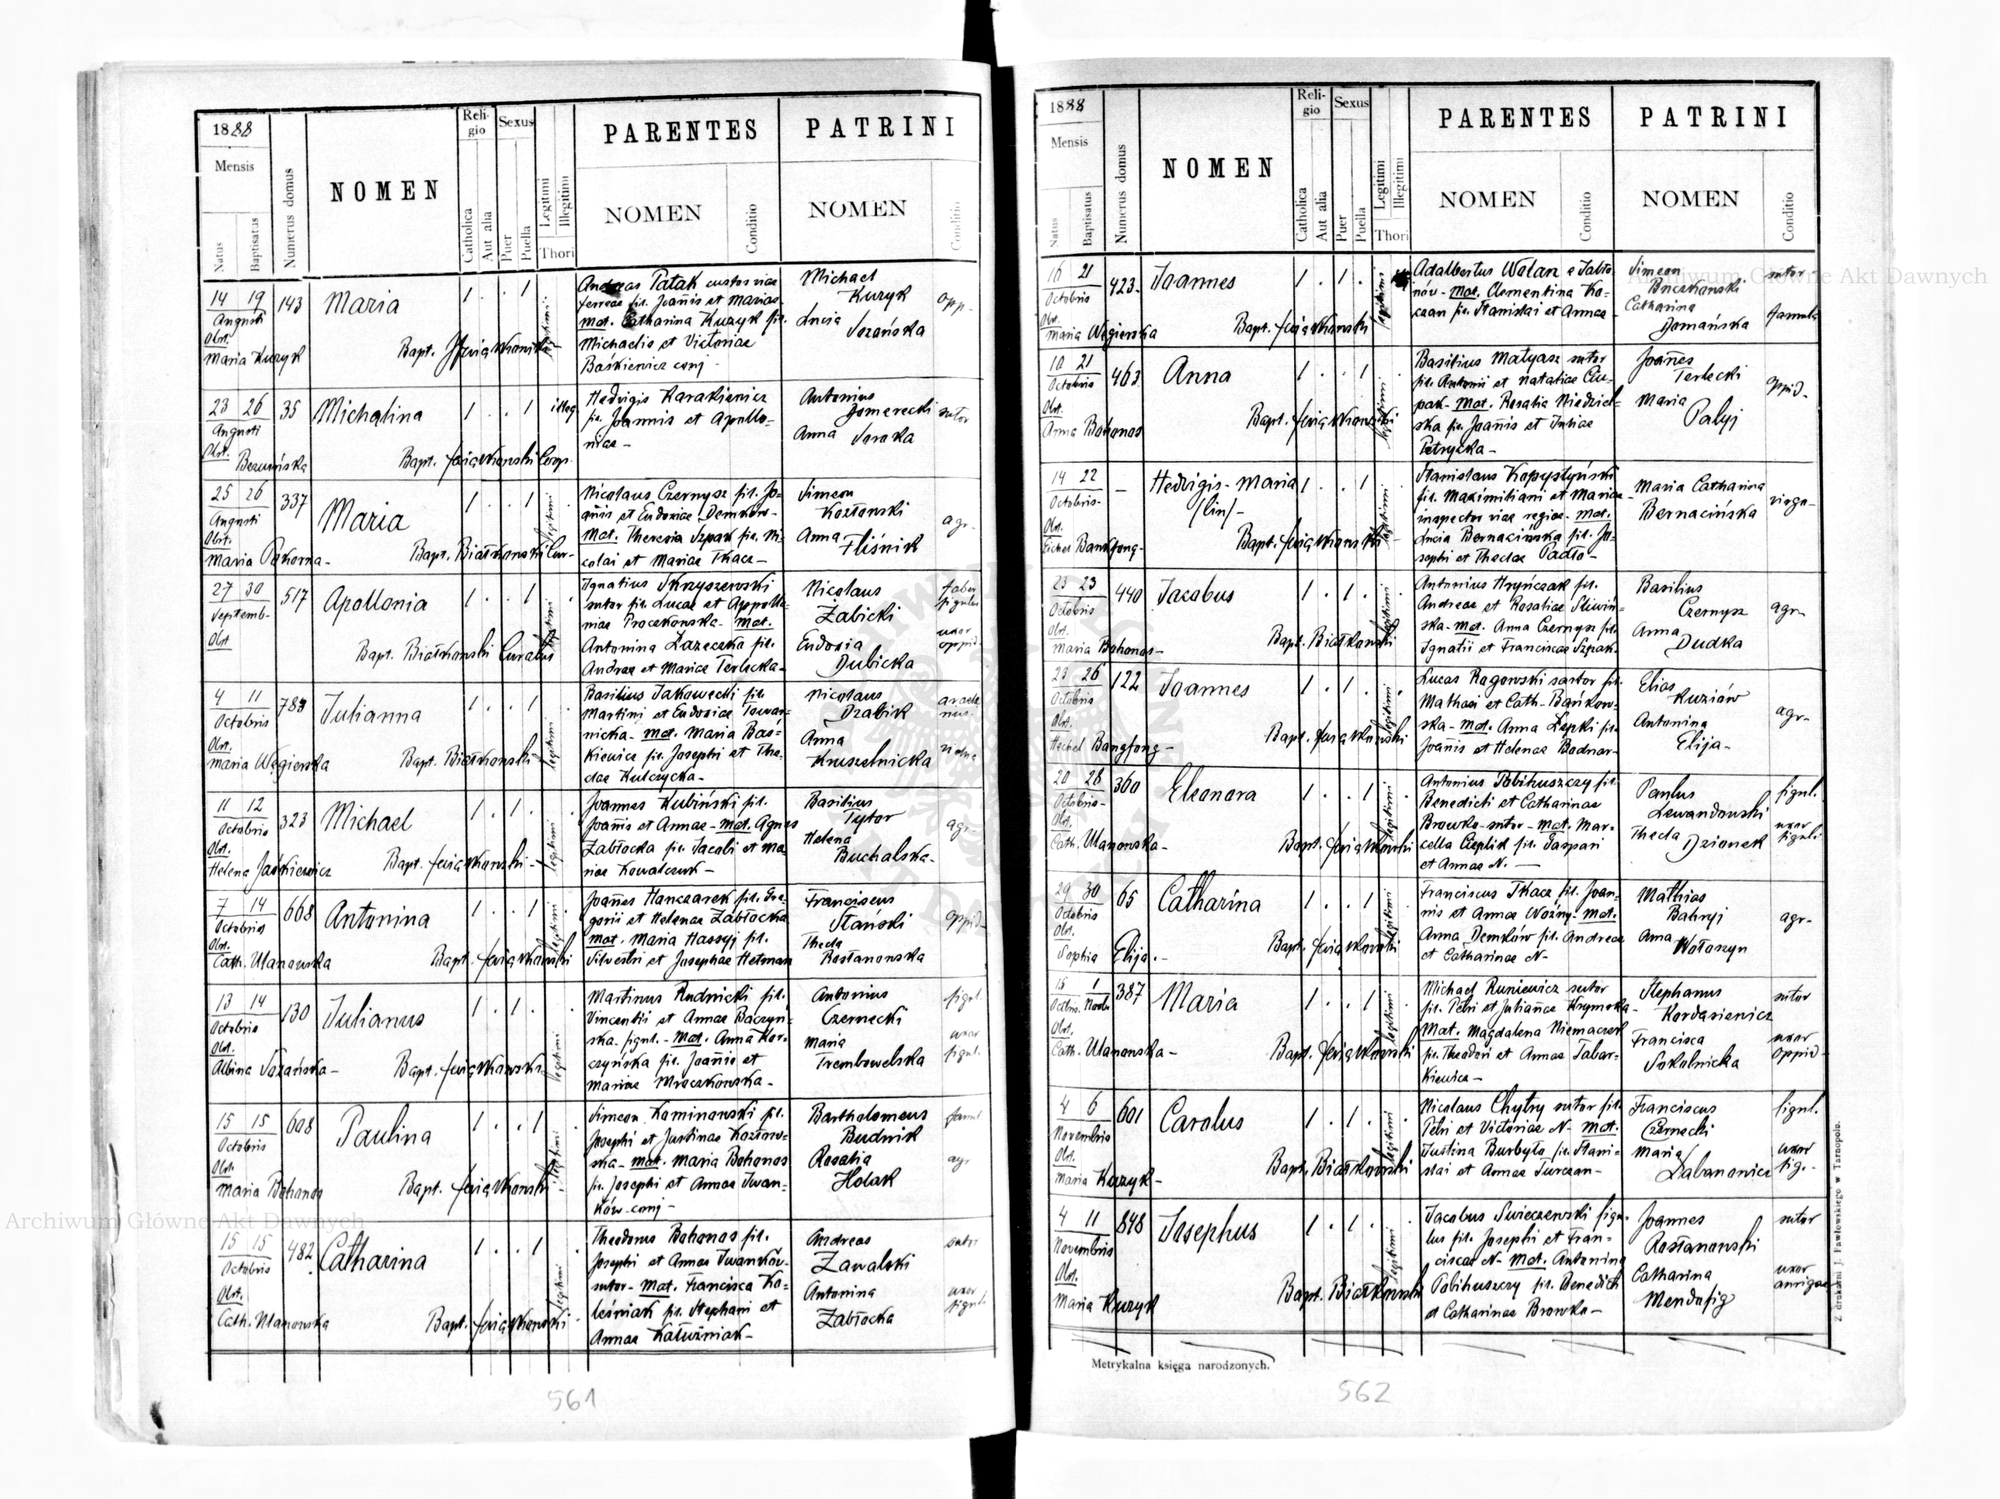 1888
Mensis
Natus
Baptisatus
Numerus domus
NOMEN
Religio
Catholica
Aut alia
Sexus
Puer
Puella
Legitimi
Illegitimi
Thori
PARENTES
NOMEN
Conditio
PATRINI
NOMEN
Conditio
14 19
Augusti
143
Maria
1 . . 1
Obst.
Maria Kuzyk
Bapt.
legitimi
Andreas Patak custos viae
ferreae fil. Joañis et Mariae
mat. Catharina Kuzyk fil.
Michaelis et Victoriae
Baśkiewicz conj.
Michael
Kuzyk
Lucia
Sozańska
opp.
23 26
Augusti
35
Michalina
1 . . 1
illeg.
Obst.
Bapt. Coop.
Hedvigis Karakiewicz
fil. Joannis et Apollo-
niae -
Antonius
Anna Soroka
sutor
25 26
Augusti
337
Maria
1 . . 1
legitimi
Obst.
Maria Pokorna -
Bapt. Białkowski Cur-
Nicolaus Czernysz fil. Jo-
añis et Eudoxiae Demków -
Mat. Theresia Szpak fil. Ni-
colai et Mariae Tkacz -
Simeon
Kozłowski
Anna
Fliśnik
agr-
27 30
Septemb-
517
Apollonia
1 . . 1
legitimi
Obst.
Bapt. Białkowski Curatus
Ignatius Skryszewski
sutor fil. Lucae et Appollo-
niae Proczkowska - mat.
Antonina Łazeczka fil.
Andrae et Mariae Terlecka -
Nicolaus
Żabicki
Eudoxia
Dubicka
faber
figulus
uxor
oppid-
4 11
Octobris
783
Julianna
1 . . 1
legitimi
Obst.
Maria Węgierska
Bapt. Białkowski
Basilius Jakowecki fil.
Martini et Eudoxiae Towar-
nicka - mat. Maria Bas-
kiewicz fil. Josephi et The-
clae Kulczycka -
Nicolaus
Drabik
Anna
Kruszelnicka
vidua
11 12
Octobris
323
Michael
1 . 1 .
legitimi
Obst.
Helena Jaśkiewicz
Bapt.
Joannes Kubiński fil.
Joañis et Annae - mat. Agnes
Zabłocka fil. Jacobi et Ma-
riae Kowalczuk -
Basilius
Tytor
Helena
Buchalska -
agr-
7 14
Octobris
668
Antonina
1 . . 1
legitimi
Obst.
Cath. Ulanowska
Bapt.
Joañes Hanczarek fil. Gre-
gorii et Helenae Zabłocka
mat. Maria Hassyj fil.
Silvestri et Josephae Hetman
Franciscus
Stański
Thecla
Rostanowska
oppid-
13 14
Octobris
130
Julianus
1 . 1 .
legitimi
Obst.
Albina Sozańska -
Bapt.
Martinus Rudnicki fil.
Vincentii et Annae Baczyń-
ska figul. - Mat. Anna Kor-
czyńska fil. Joañis et
Mariae Mroczkowska -
Antonius
Czernecki
Maria
Trembowelska
figul.
uxor
figul.
15 15
Octobris
608
Paulina
1 . . 1
legitimi
Obst.
Maria Bohonos
Bapt.
Simeon Kaminowski fil.
Josephi et Justinae Kozłow-
ska - mat. Maria Bohonos
fil. Josephi et Annae Iwan-
ków conj -
Bartholomeus
Budnik
Rosalia
Holak
famul
agr
15 15
Octobris
482
Catharina
1 . . 1
legitimi
Obst.
Cath. Ulanowska
Bapt.
Theodorus Bohonos fil.
Josephi et Annae Iwanków
sutor - Mat. Francisca Ko-
leśniak fil. Stephani et
Annae Kałużniak -
Andreas
Zawalski
Antonina
Zabłocka
sutor
uxor
figul.
561
1888
Mensis
Natus
Baptisatus
Numerus domus
NOMEN
Religio
Catholica
Aut alia
Sexus
Puer
Puella
Legitimi
Illegitimi
Thori
PARENTES
NOMEN
Conditio
PATRINI
NOMEN
Conditio
16 21
Octobris
423
Joannes
1 . 1 .
legitimi
Obst.
Maria Węgierska
Bapt.
Adalbertus Wolan e Jabło-
nów - mat. Clementina Ko-
czan fil. Stanislai et Annae -
Simeon
Buczkowski
Catharina
Domańska
sutor
famula
10 21
Octobris
463
Anna
1 . . 1
legitimi
Obst.
Anna Bohonos
Bapt.
Basilius Matyasz sutor
fil. Antonii et Nataliae Ciu-
pak - Mat. Rosalia Niedziel-
ska fil. Joañis et Juliae
Petryczka -
Joañes
Terlecki
Maria
Palyj
oppid-
14 22
Octobris -
-
Hedvigis - Maria
/bin/ -
1 . . 1
legitimi
Obst.
Bapt.
Stanislaus Kopystyński
fil. Maximiliani et Mariae
inspector viae regiae - mat.
Lucia Bernacińska fil. Jo-
sephi et Theclae Padło -
Maria Catharina
Bernacińska
virgo -
23 23
Octobris
440
Jacobus
1 . 1 .
legitimi
Obst.
Maria Bohonos -
Bapt. Białkowski
Antonius Hryńczak fil.
Andreae et Rosaliae Śliwiń-
ska - mat. Anna Czernysz fil.
Ignatii et Franciscae Szpak -
Basilius
Czernysz
Anna
Dudka
agr-
23 26
Octobris
122
Joannes
1 . 1 .
legitimi
Obst.
Bapt.
Lucas Rogowski sartor fil.
Mathaei et Cath. Bańkow-
ska - mat. Anna Łepki fil.
Joañis et Helenae Bodnar -
Elias
Kuziów
Antonina
Elija -
agr-
20 28
Octobris -
360
Eleonora
1 . . 1
legitimi
Obst.
Cath. Ulanowska -
Bapt.
Antonius Pobihuszczy fil.
Benedicti et Catharinae
Browko - sutor - mat. Mar-
cella Cieplik fil. Gaspari
et Annae N. -
Paulus
Lewandowski
Thecla
Dzionek
figul.
uxor
figuli
29 30
Octobris
65
Catharina
1 . . 1
legitimi
Obst.
Sophia Elija . -
Bapt.
Franciscus Tkacz fil. Joan-
nis et Annae Woźny - mat.
Anna Demków fil. Andreae
et Catharinae N -
Mathias
Bahryj
Anna
Wołoszyn
agr-
15 1
Octbr. Novbr
387
Maria
1 . . 1
legitimi
Obst.
Cath. Ulanowska -
Bapt.
Michael Runiewicz sutor
fil. Petri et Juliañae Krymska -
Mat. Magdalena Niemaczek
fil. Theodori et Annae Tabar-
kiewicz -
Stephanus
Kordasiewicz
Francisca
Sokolnicka
sutor
uxor
oppid -
4 6
Novembris
601
Carolus
1 . 1 .
legitimi
Obst.
Maria Kuzyk -
Bapt. Białkowski
Nicolaus Chytry sutor fil.
Petri et Victoriae N - mat.
Justina Burbyło fil. Stani-
slai et Annae Turczan -
Franciscus
Czernecki
Maria
Łabanowicz
figul.
uxor
fig -
4 11
Novembris
848
Josephus
1 . 1 .
legitimi
Obst.
Maria Kuzyk
Bapt. Białkowski
Jacobus Swieczewski figu-
lus fil. Josephi et Fran-
ciscae N - mat. Antonina
Pobihuszczy fil. Benedicti
et Catharinae Browko -
Joannes
Rostanowski
Catharina
Mendofig
sutor
uxor
aurigae
Metrykalna księga narodzonych.
Z drukarni J. Pawłowskiego w Tarnopolu.
562
Archiwum Główne Akt Dawnych
Archiwum Główne Akt Dawnych